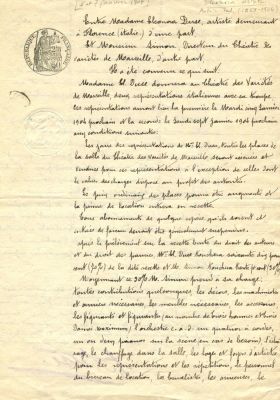 Entre Madame Eleonora Duse, artiste demeurant
à Florence (Italie) d'une part.
Et Monsieur Simon Directeur du Théâtre des
Variétés de Marseille, d'autre part
Il a été convenu ce qui suit.
Madame El. Duse donnera au Théâtre des Variétés
de Marseille, deux représentations italiennes avec sa troupe.
Ces représentations auront lieu la première le Mardi cinq Janvier
1904 prochain et la seconde le Jeudi sept janvier 1904 prochain
aux conditions suivantes.
Les jours des représentations de Mme El. Duse, toutes les places de
la salle du Théâtre des Variétés de Marseille seront louées et
vendues pour ces représentations à l'exception de celles dont
le cahier des charges dispose au profit des autorités.
Le prix ordinaire des places pourra être augmenté et
la prime de location entrera en recette.
Tous abonnements de quelque espèce qu'ils soient et
entrées de faveur devront être généralement suspendues.
Après le prélèvement sur la recette brute du droit des auteurs
et du droit des pauvres, Mme El. Duse touchera soixante dix pour
cent (70%) de la dite recette et M. Simon touchera trente pour cent 30%
Moyennant ce 30% M. Simon prend à sa charge,
toutes contributions quelconques, les décors, les machinistes
et aides nécessaires, les meubles nécessaires, les accessoires,
les figurants et figurantes, au nombre de
maximum, l'orchestre c. à d. un quatuor à cordes,
un ou deux pianos sur la scène en cas de besoin, l'éclai-
rage, le chauffage dans la salle, les loges et foyers d'artistes
pour les représentations et les répétitions, le personnel
du bureau de location, les buralistes, les annonces, le